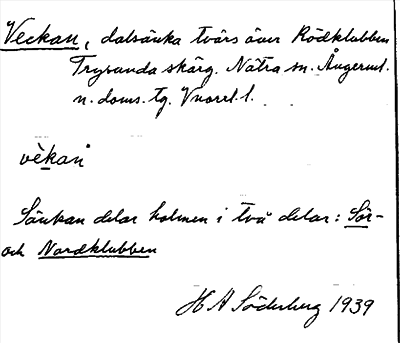 Veckan, dalsänka tvärs över Rödklubben
Trysunda skärg. Nätra sn. Ångerml.
n. doms. tg. Vnorrl. l.
vèkan
Sänkan delar holmen i två delar: Sör-
och Nordklubben
H A Söderberg 1939